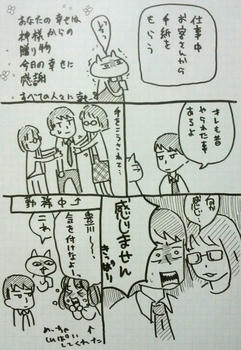 仕事中
お客さんから
手紙を
もらう
どうぞ
あなたの幸せは
神様からの
贈り物
今日の幸せに
感謝
すべての人々に
オレも昔
やられた事
あるよ
手をこうされて…
勤務中↑
何か
感じ
感じません
きっぱり
気を付けなよー
こわ
めっちゃ
しんぱい
してくれた